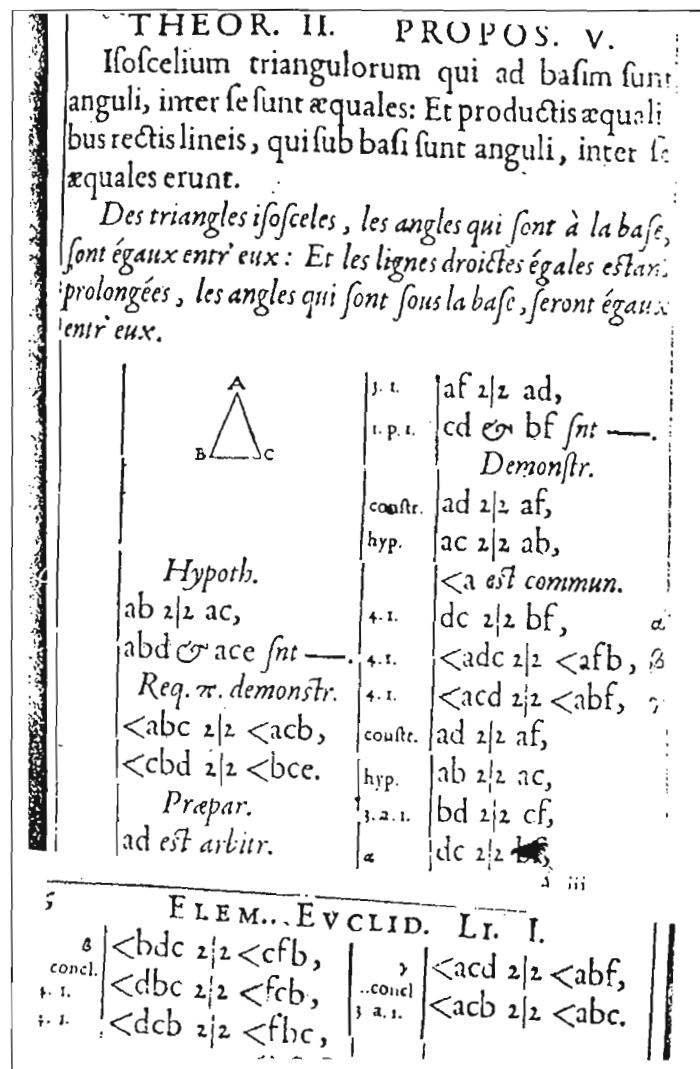 THEOR. II. PROPOS. V.
Iſoſcelium triangulorum qui ad baſim ſunt
anguli, inter ſe ſunt æquales: Et productis æquali
bus rectis lineis, qui ſub baſi ſunt anguli, inter ſe
æquales erunt.
Des triangles iſoſceles, les angles qui ſont à la baſe,
ſont égaux entr' eux: Et les lignes droictes égales eſtant
prolongées, les angles qui ſont ſous la baſe, ſeront égaux
entr' eux.
A
B C
Hypoth.
ab 2|2 ac,
abd & ace ſnt —.
Req. π. demonſtr.
<abc 2|2 <acb,
<cbd 2|2 <bce.
Præpar.
ad eſt arbitr.
3. 1. af 2|2 ad,
1. p. 1. cd & bf ſnt —.
Demonſtr.
conſtr. ad 2|2 af,
hyp. ac 2|2 ab,
<a eſt commun.
4. 1. dc 2|2 bf, α
4. 1. <adc 2|2 <afb, β
4. 1. <acd 2|2 <abf, γ
conſtr. ad 2|2 af,
hyp. ab 2|2 ac,
3. a. 1. bd 2|2 cf,
α dc 2|2 bf,
iii
ELEM... EVCLID. LI. I.
β <bdc 2|2 <cfb,
concl.
4. 1. <dbc 2|2 <fcb,
4. 1. <dcb 2|2 <fbc,
γ <acd 2|2 <abf,
..concl
3 a. 1. <acb 2|2 <abc.